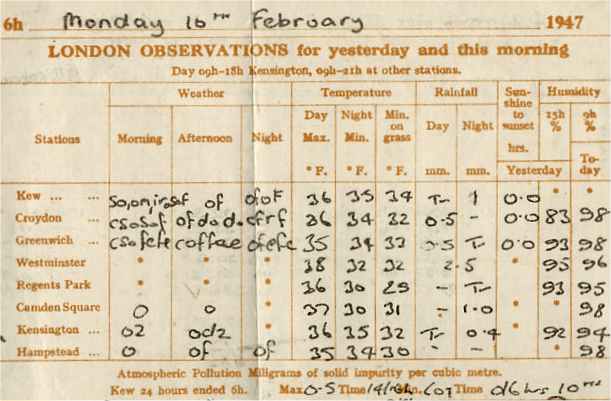 6h Monday 10TH February 1947
LONDON OBSERVATIONS for yesterday and this morning
Day 09h-18h Kensington, 09h-21h at other stations.
Stations Weather Temperature Rainfall Sunshine to sunset Humidity
Morning Afternoon Night Day Max. Night Min. Min. on grass Day Night hrs. 15h % 9h %
° F. ° F. ° F. mm. mm. Yesterday To-day
Kew ... ... of 36 35 34 Tr 1 0.0 * *
Croydon ... 36 34 32 0.5 - 0.0 83 98
Greenwich ... 35 34 33 Tr 0.0 93 98
Westminster * * * 38 32 32 2.5 * 95 96
Regents Park * * * 36 30 29 - Tr 93 95
Camden Square o o 37 30 31 - 1.0 * * 98
Kensington ... oz odz 36 35 32 Tr 0.4 * 92 94
Hampstead ... o of of 35 34 30 - - * 98
Atmospheric Pollution Miligrams of solid impurity per cubic metre.
Kew 24 hours ended 6h. Max 0.5 Time Min. Time 06 hrs 10TH